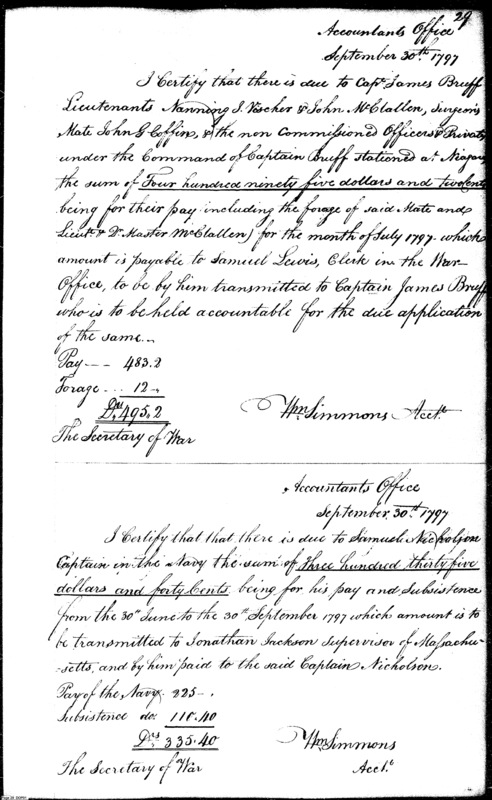 29
Accountants Office
September 30th 1797
I Certify that there is due to Capt. James Bruff
Lieutenants Nanning J. Vischer & John McClallen, Surgeons
Mate John G Coffin, & the non Commissioned Officers & Privates
under the Command of Captain Bruff stationed at Niagara
the sum of Four hundred ninety five dollars and two Cents
being for their pay (including the forage of said Mate and
Lieut. & Qr. Master McClallen) for the month of July 1797. which
amount is payable to Samuel Lewis, Clerk in the War
Office, to be by him transmitted to Captain James Bruff
who is to be held accountable for the due application
of the same.
Pay - - 483.2
Forage - - - 12 -
Drs 495.2
Wm. Simmons Acct.
The Secretary of War
Accountants Office
September 30th 1797
I Certify that that there is due to Samuel Nicholson
Captain in the Navy the sum of Three hundred thirty five
dollars and forty Cents being for his pay and Subsistence
from the 30th June to the 30th September 1797 which amount is to
be transmitted to Jonathan Jackson Supervisor of Massachu-
-setts, and by him paid to the said Captain Nicholson.
Pay of the Navy 225 -.
Subsistence do. 110.40
Drs 335.40
Wm Simmons
The Secretary of War
Acct.